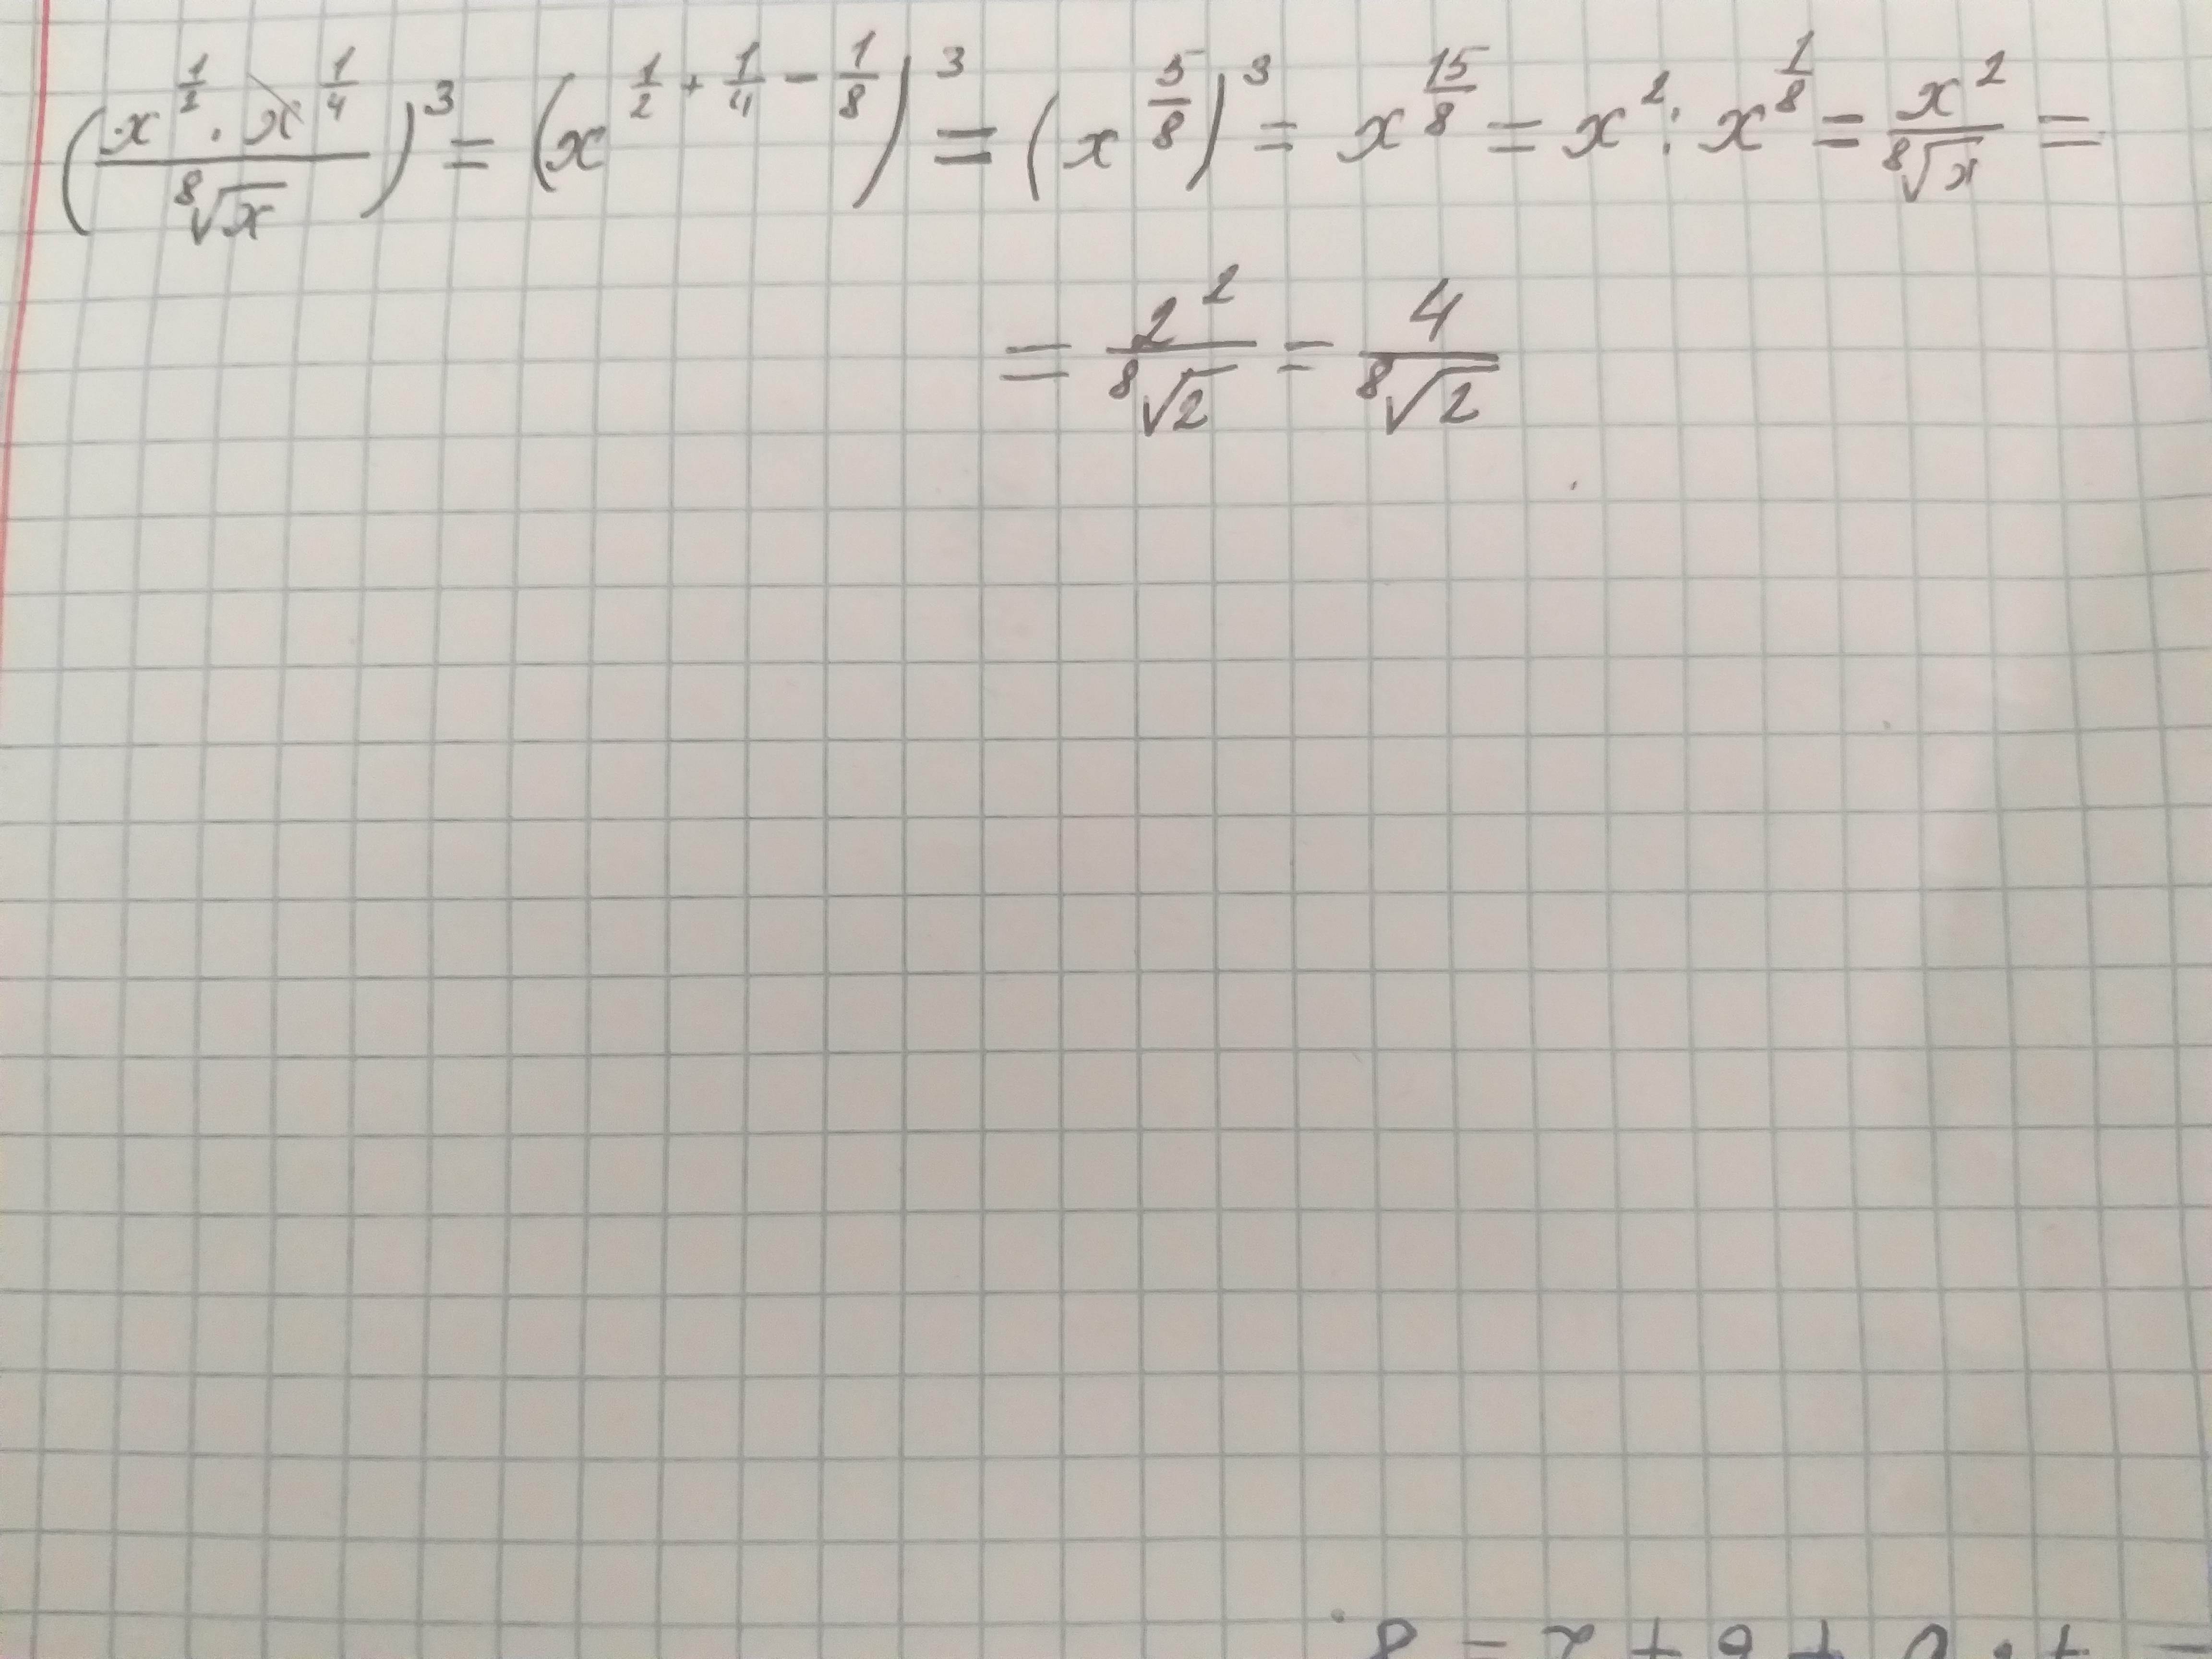 (x^{1/2} · x^{1/4} / ⁸√x)^3 = (x^{1/2 + 1/4 - 1/8})^3 = (x^{5/8})^3 = x^{15/8} = x^2 : x^{1/8} = x^2 / ⁸√x =
= 2^2 / ⁸√2 = 4 / ⁸√2